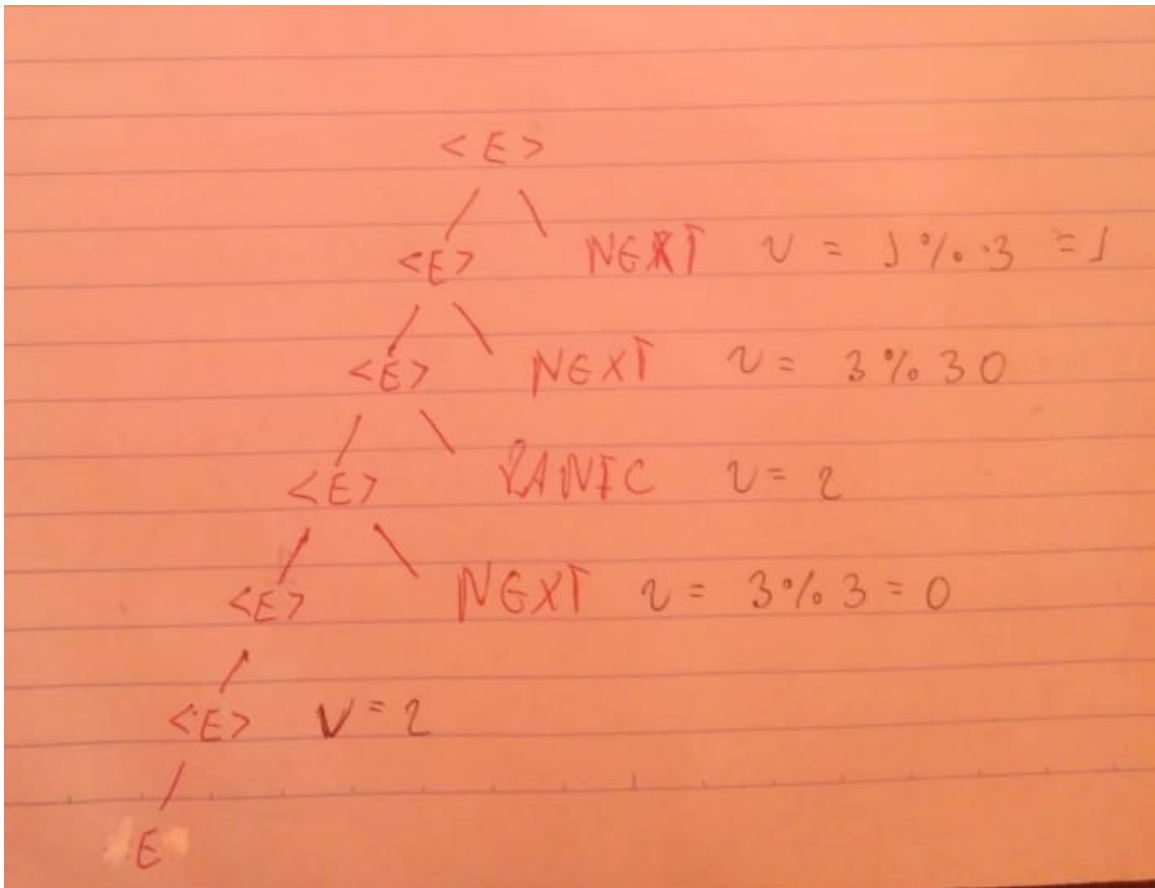 <E>
<E> NEXT v = 1 % 3 = 1
<E> NEXT v = 3 % 3 0
<E> PANIC v = 2
<E> NEXT v = 3 % 3 = 0
<E> v = 2
E